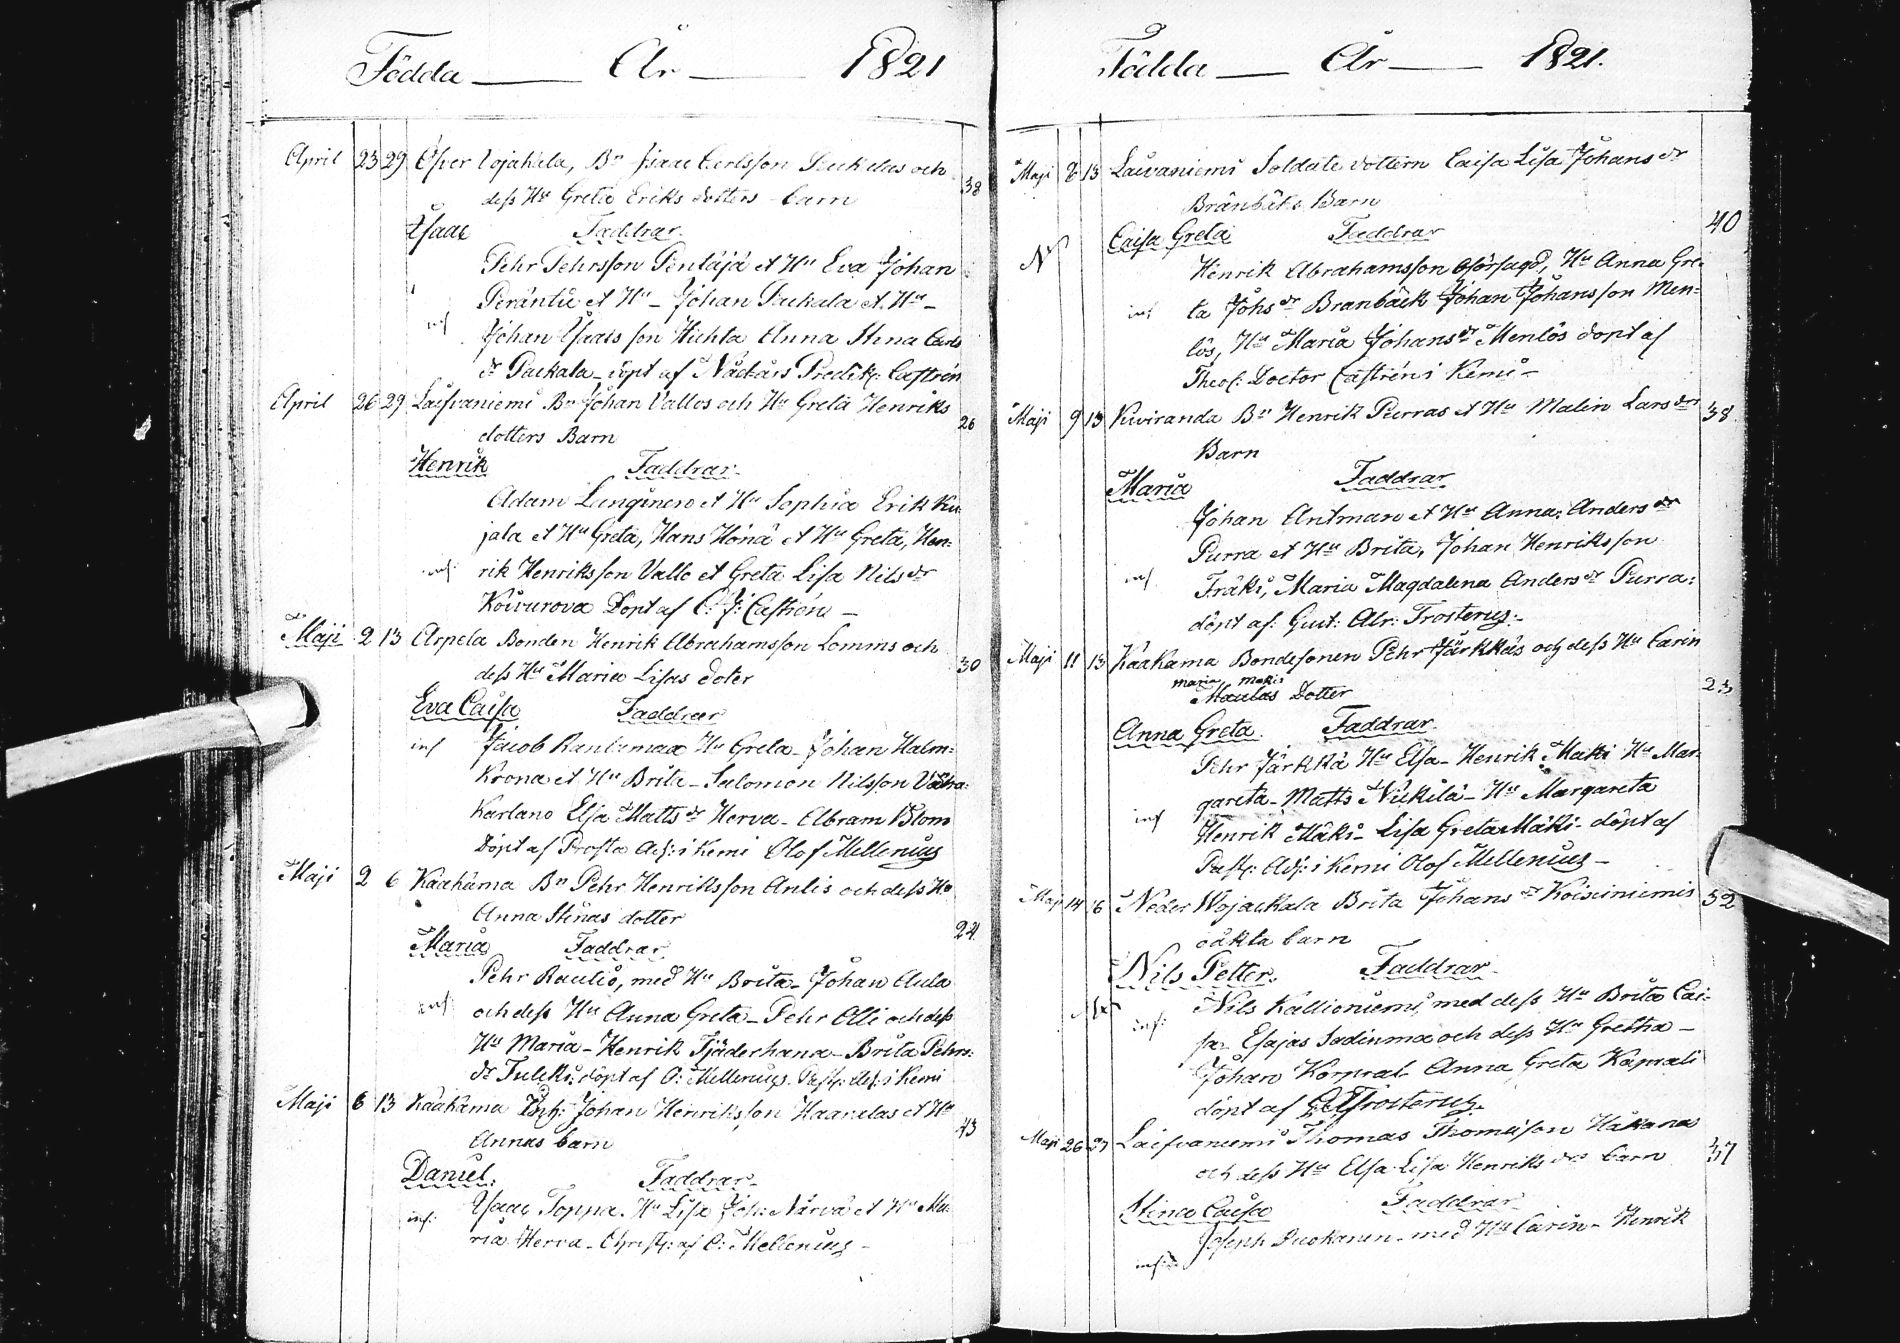 Födda — År — 1821
April 23 29 Öfver Vojakala, Bn Isaac Carlsson och 38
dess Hu Greta Eriks dotters barn
Isaac Faddrar
Pehr Pehrsson Pentäjä et Hu Eva Johan
Peräntie et Hu – Johan Packala et Hu –
inf Johan Isaacsson Hiehta Anna Stina Carls
dr Packala – döpt af Nådeårs Predik: Castrén
April 26 29 Laifvaniemi Bn Johan Vallos och Hu Greta Henriks 26
dotters Barn
Henrik Faddrar
Adam et Hu Sophia Erik Ku-
jala et Hu Greta, Hans Hönä et Hu Greta, Hen-
inf: rik Henriksson Vallo et Greta Lisa Nilsdr
Koivurova Döpt af C: J: Castrén –
Maji 2 13 Arpela Bonden Henrik Abrahamsson Lomms och 30
dess Hu Maria Lisas doter
Eva Caisa Faddrar
inf Jacob Rantamaa Hu Greta – Johan Halm-
krona et Hu Brita – Salomon Nilsson
Karlano Elsa Mattsdr Herva – Abram Blom
Döpt af Prosta Adj: i Kemi Olof Mellenius
Maji 2 6 Kaakama Bn Pehr Henriksson Anlis och dess Hu
Anna Stinas dotter 24
Maria Faddrar
Pehr Rautio, med Hu Brita – Johan Aula
inf och dess Hu Anna Greta – Pehr Olli och dess
Hu Maria – Henrik Tjäderhana – Brita Pehrs-
dr döpt af O: Mellenius Past: Adj: i Kemi
Maji 6 13 Kaakama Johan Henriksson Haanelas et Hu 43
Annas barn
Daniel. Faddrar –
inf: Isaac Toppa Hu Lisa Joh: Närvä et Hu Ma-
ria Herva – Christ: af O: Mellenius –
Födda — År — 1821.
Maji 8 13 Laivaniemi Soldate dottern Caisa Lisa Johans dr
Bränbäks Barn
Caisa Greta Faddrar 40
N Henrik Abrahamsson Hu Anna Gre-
inf ta Johsdr Branbäck Johan Johansson Men-
lös, Hu Maria Johansdr Menlös döpt af
Theol: Doctor Castrén i Kemi –
Maji 9 13 Kiviranda Bn Henrik Purras et Hu Malin Larsdrs 38
Barn
Maria Faddrar
Johan Antman et Hu Anna; Anders dr
Purra et Hu Brita, Johan Henriksson
inf Fräki, Maria Magdalena Andersdr Purra:
döpt af: Gust: Abr: Frosterus: –
Maji 11 13 Kaakama Bondesonen Pehr Järkkäs och dess Hu Carin
Maria Mäkis
Maulas Dotter 23
Anna Greta. Faddrar
Pehr Järkkä Hu Elsa – Henrik Mäki Hu Mar-
gareta – Matts Nickilä – Hu Margareta
inf Henrik Mäki – Lisa Greta Mäki – döpt af
Past: Adj: i Kemi Olof Mellenius –
Maji 14 16 Neder Wojackala Brita Johans dr Koisiniemis 32
oäkta barn
Nils Petter. Faddrar –
inf: Nils Kallioniemi, med dess Hu Brita Cai-
sa – Esajas och dess Hu Gretha –
Johan Korpral Anna Greta Kaprali
döpt af GAFrosterus.
Maji 26 27 Laifvaniemi Thomas Thomasson Hakanas
och dess Hu Elsa Lisa Henriksdrs barn 37
Stina Caisa Faddrar
Joseph Ruokanen – med Hu Carin – Henrik
inf: